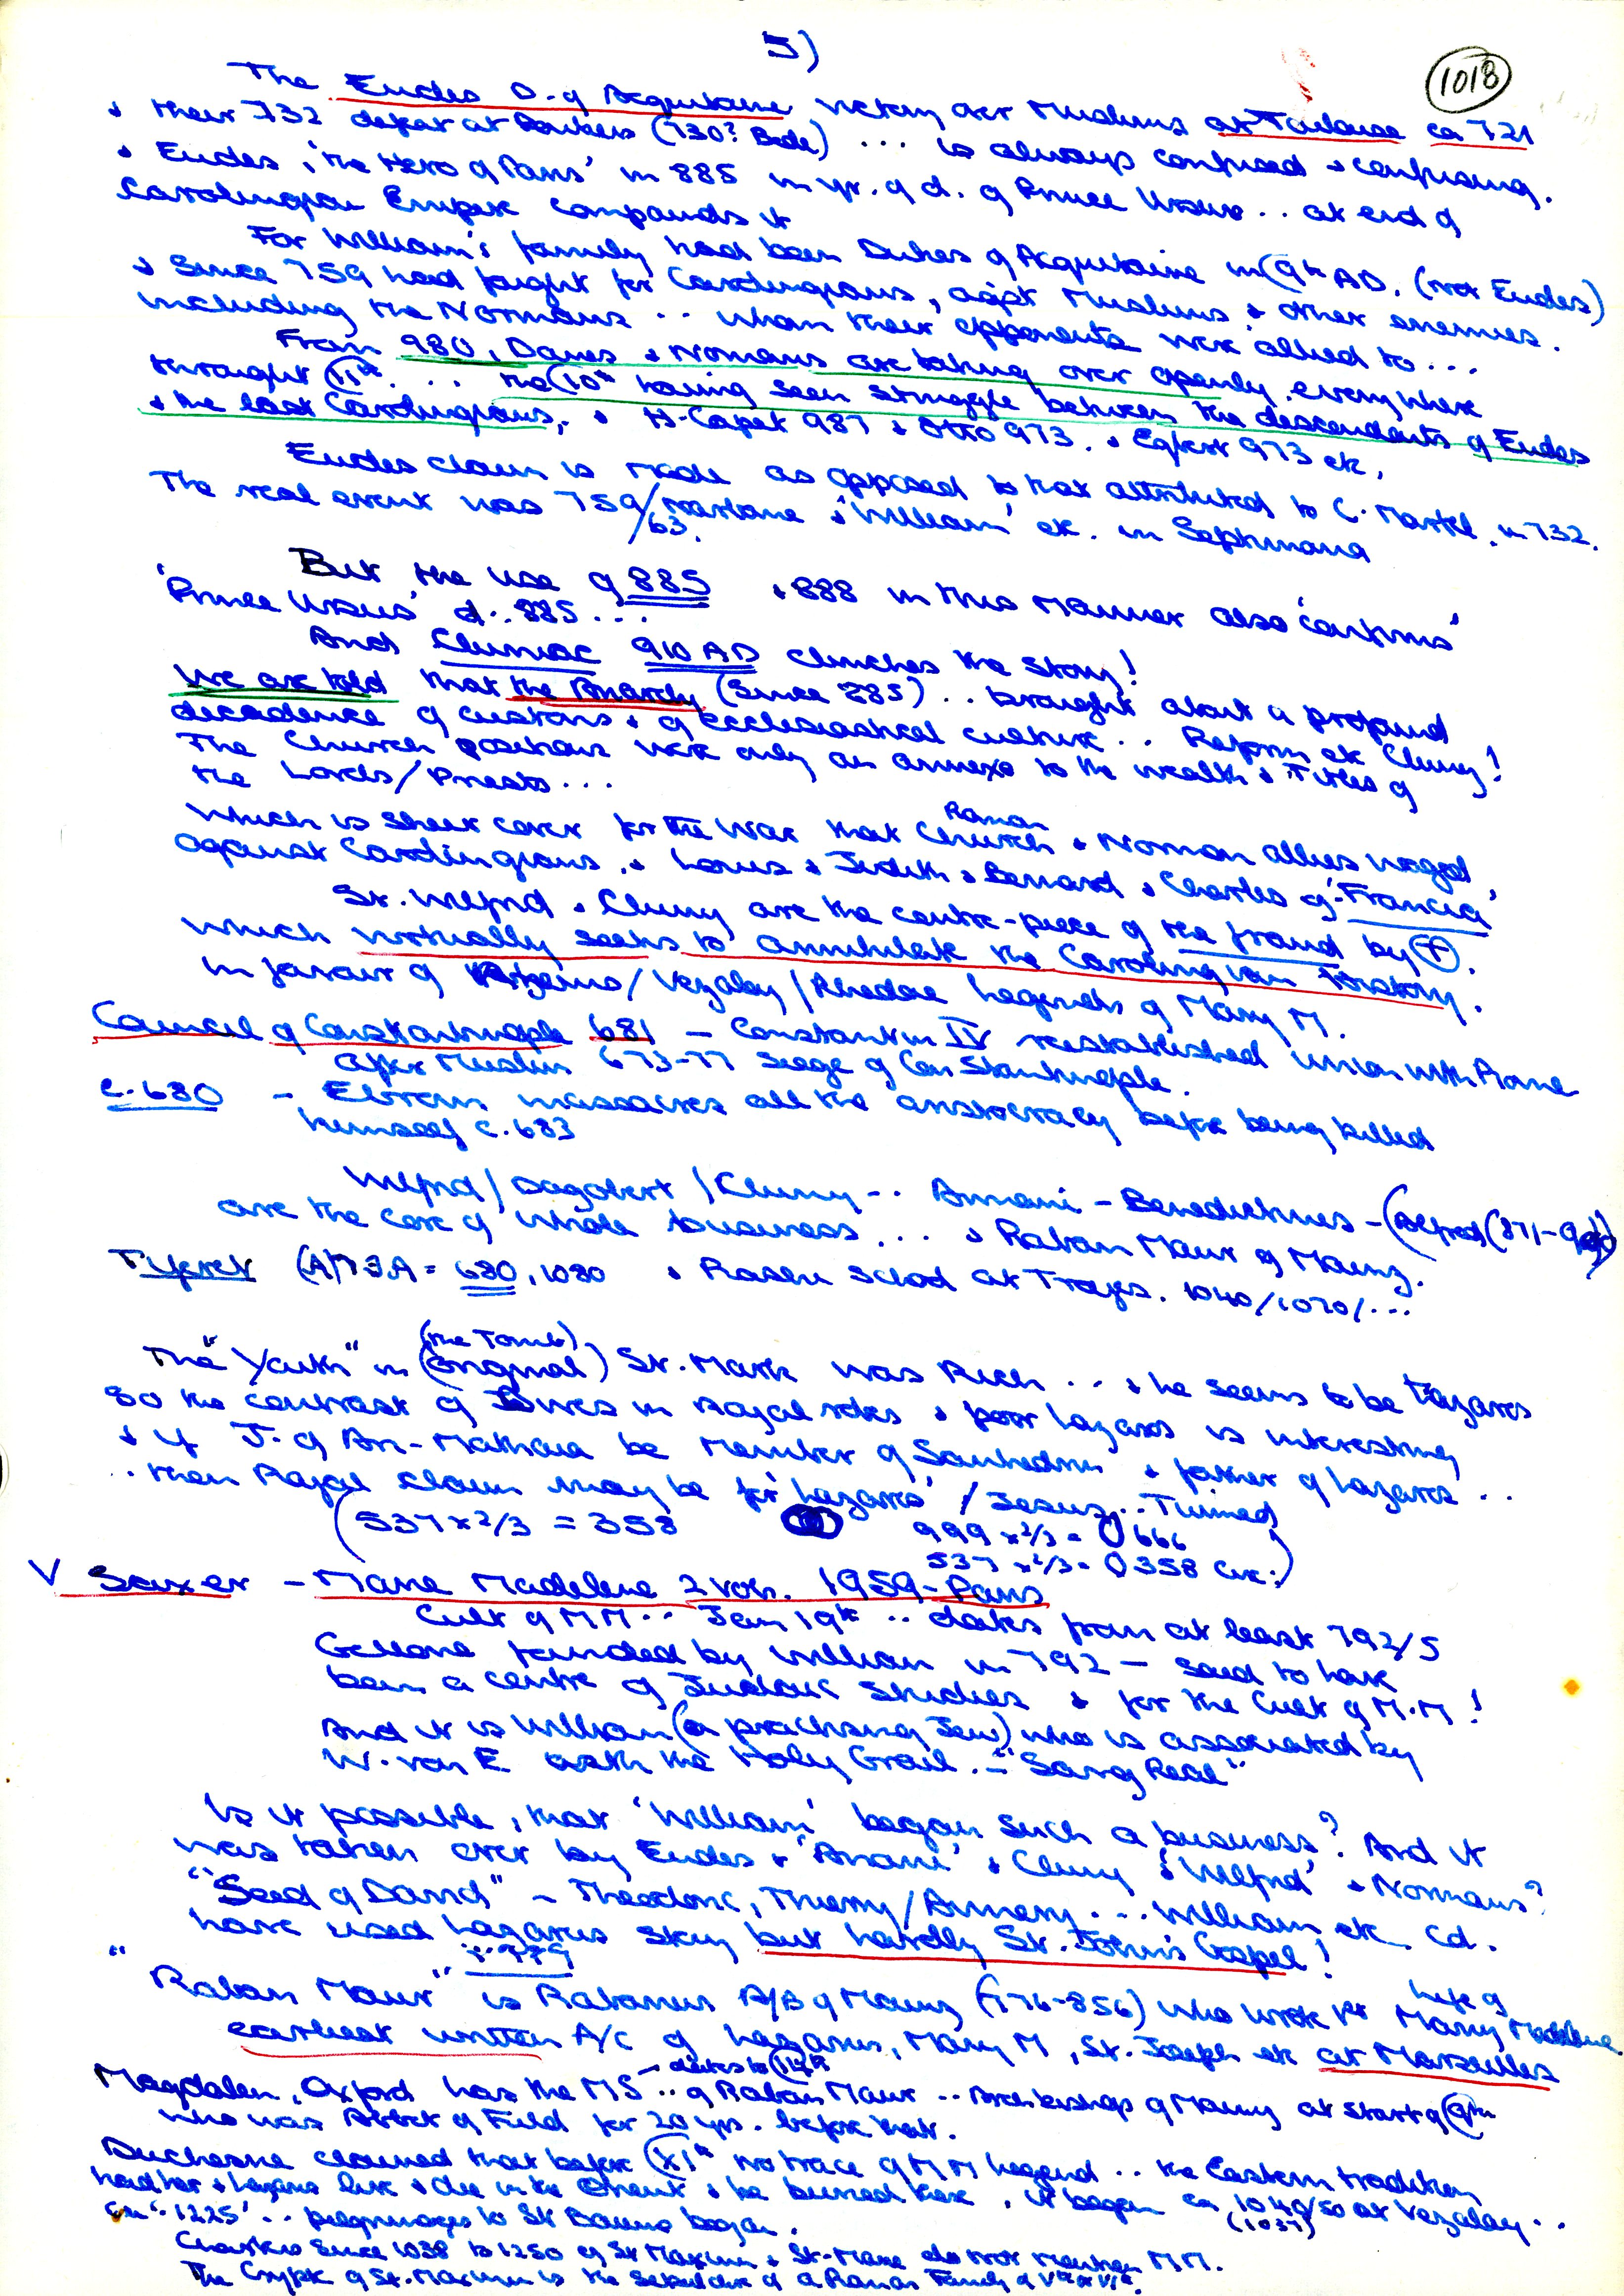 5)
1018
The Eudes D. of Acquitaine victory over Muslims at Toulouse ca 721
& their 732 defeat at Poitiers (730? Bede) ... is always confused & confusing.
& Eudes 'the Hero of Paris' in 885 in yr. of d. of Prince Ursus .. at end of
Carolingian Empire compounds it
For William's family had been Dukes of Acquitaine in 9th AD. (not Eudes)
& since 759 had fought for Carolingians, agst Muslims & other enemies.
including the Normans .. when their opponents were allied to ...
From 980, Danes & Normans are taking over openly everywhere
throught 11th. ... the 10th having seen struggle between the descendants of Eudes
& the last Carolingians, & H. Capet 987 & Otto 973. & 973 etc,
Eudes claim is made as opposed to that attributed to C. Martel in 732.
The real event was 759/63. Narbonne & 'William' etc. in Septimania
But the use of 885 & 888 in this manner also 'confirms'
'Prince Ursus' d. 885 ...
And Cluniac 910 AD clinches the story!
We are told that the Anarchy (since 885) .. brought about a profound
decadence of customs & of ecclesiastical culture .. Reform etc Cluny!
The Church positions were only an annexe to the wealth & Titles of
the Lords/Priests ...
Which is sheer cover for the war that Roman Church & Norman allies waged
against Carolingians, & Louis & Judith & Bernard & Charles of 'Francia'
St. Wilfrid & Cluny are the centre-piece of the fraud by (+).
which virtually seeks to annihilate the Carolingian history.
in favour of /Vezalay/Rhedae Legends of Mary M.
Council of Constantinople 681 - Constantin IV reestablished union with Rome
after Muslim 673-77 Siege of Constantinople.
c. 680 - Ebroin massacres all the aristocracy before being killed
himself c. 683
Wilfrid/Dagobert/Cluny .. - Benedictines - (Alfred (871-
are the core of whole business ... & Raban Maur of Mainz.
= 680, 1080 & Rashi School at Troyes. 1040/1070/...
The "Youth" in (original) (the Tomb) St. Mark was Rich ... & he seems to be Lazarus
so the contrast of in royal robes & poor Lazarus is interesting
& if J. of Ari-Mathaea be Member of Sanhedrin & father of Lazarus ..
.. then Royal claim may be for 'Lazarus' / Jesus .. Twinned
(537 x 2/3 = 358
999 x 2/3 = 0 666
537 x 2/3 = 0 358 )
V Saxer - Marie Madelene 2 vols. 1959 - Paris
Cult of MM .. .. dates from at least 792/5
Gellone founded by William in 792 - said to have
been a centre of Judaic studies & for the Cult of M.M!
And it is William (a practising Jew) who is associated by
W. von E with the Holy Grail. - "Sang Real"
Is it possible, that 'William' began such a business? And it
was taken over by Eudes & & Cluny & 'Wilfrid' & Normans?
"Seed of David" - Theodoric, Thierry/Aymery ... William etc. Cd.
have used Lazarus story but hardly St. John's Gospel!
"Raban Maur" is Rabanus A/B of Mainz (776-856) who wrote Life of Mary Madelene.
earliest written A/C of Lazarus, Mary M, St. Joseph etc at Marseilles
Magdalen, Oxford has the MS .. of Raban Maur .. Archbishop of Mainz at start of 9th
who was Abbot of Fuld for 20 yrs. before that.
Duchesne claimed that before XIth no trace of MM legend .. the Eastern tradition
had her & Lazarus live & die in the Orient & be buried there, it began ca 1040/50 at Vezalay ..
(1037)
'1225' .. pilgrimages to St Baume began.
Charters since 1038 to 1250 of St Maximin & St. Marie do not mention MM.
The Crypte of St. Maximin is the sepulchre of a Roman Family of Vth or VIth.